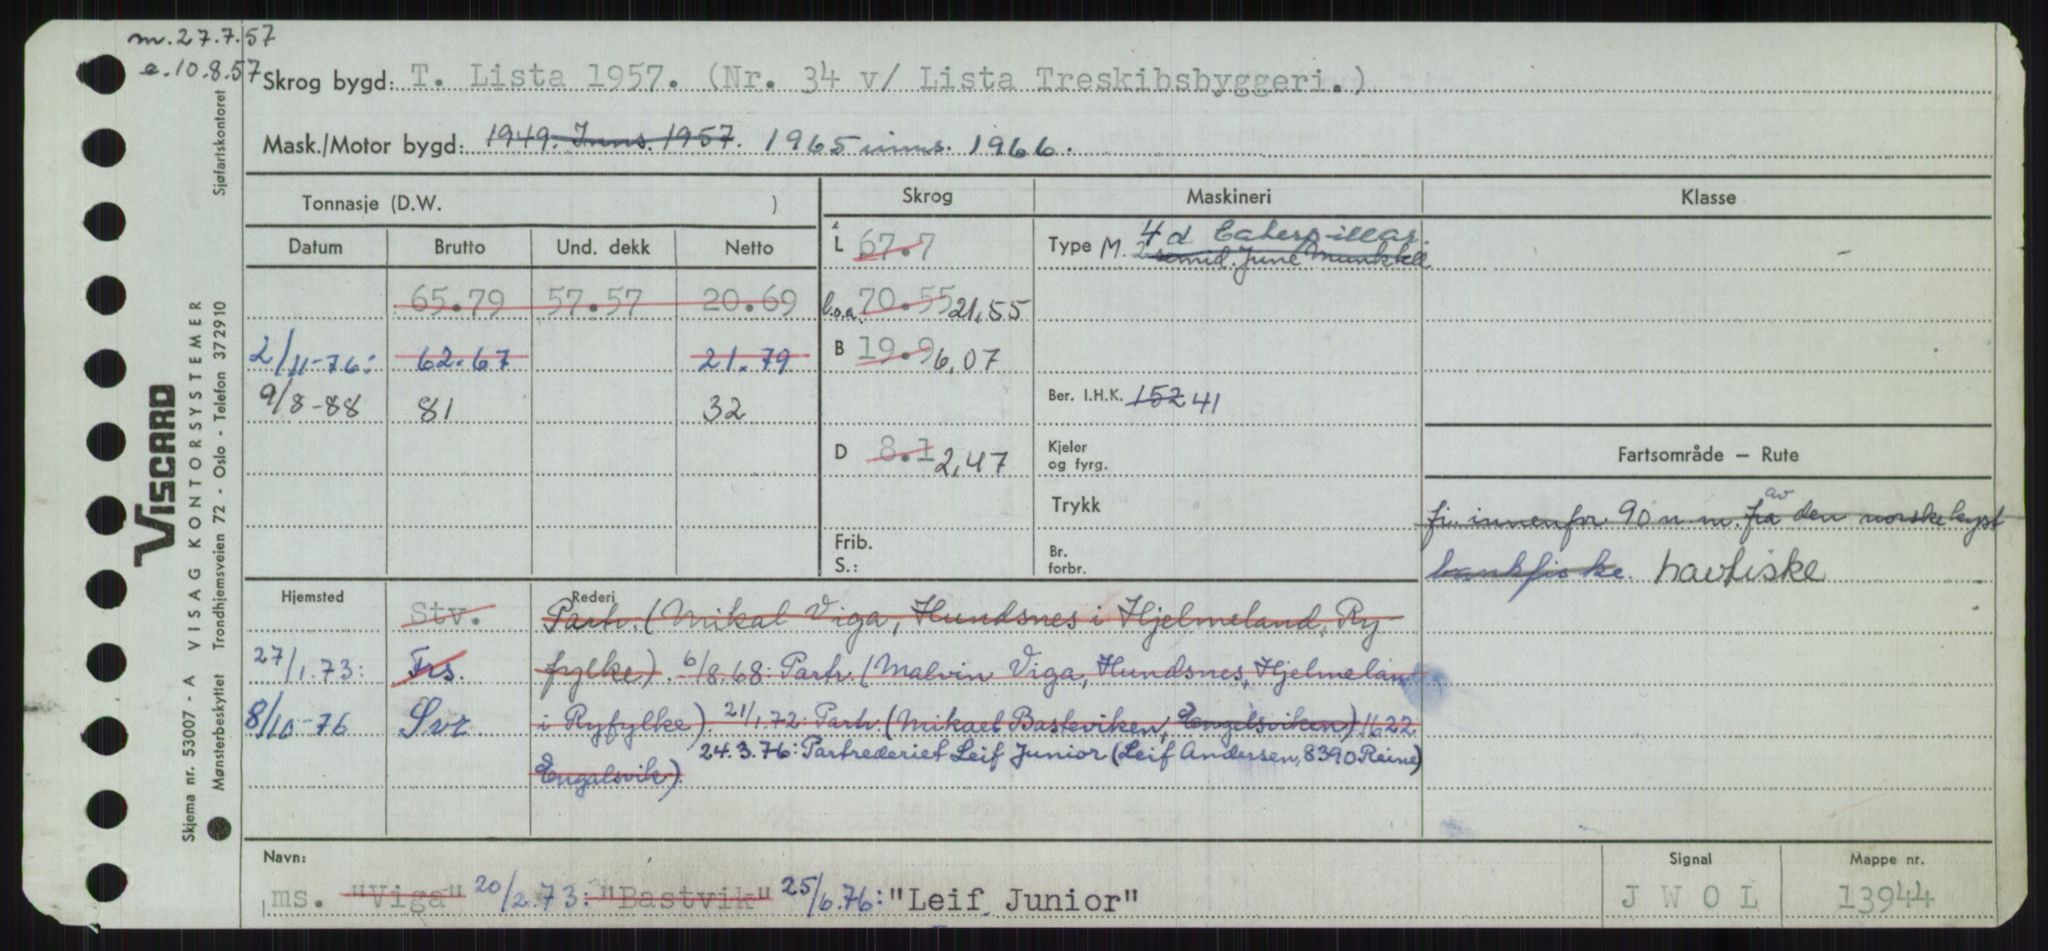 m. 27.7.57
e. 10.8.57
Skrog bygd: T. Lista 1957. (Nr. 34 v/ Lista Treskibsbyggeri.)
Mask./Motor bygd: 1949. Inns. 1957. 1965 inns. 1966.
Tonnasje (D.W. )
Skrog Maskineri Klasse
Datum Brutto Und. dekk Netto
L 67.7
Type M. 4 d Caterpillar.
2 semid. June Munktell
65.79 57.57 20.69
l.o.a. 70.55 21,55
2/11-76: 62.67 21.79
B 19.9 6,07
9/8-88 81 32
Ber. I.H.K. 152 41
D 8.1 2,47
Kjeler
og fyrg.
Fartsområde – Rute
Trykk
fi. innenfor 90 n.m. fra av den norske kyst
Frib.
S.:
Br.
forbr.
bankfiske. havfiske
Hjemsted
Rederi
Stv. Partr. (Mikal Viga, Hundsnes i Hjelmeland, Ry
27/1.73: Frs. fylke). 6/8.68: Partr. (Malvin Viga, Hundsnes, Hjelmelan
8/10-76 Svr i Ryfylke). 21/1.72: Partr. (Mikael Basteviken, Engelsviken) 1622
24.3.76: Partrederiet Leif Junior (Leif Andersen, 8390 Reine)
Engalsvik).
Navn:
ms. "Viga" 20/2.73: "Bastvik" 25/6.76: "Leif Junior"
Signal
J W O L
Mappe nr.
13944
VISCARD
VISAG KONTORSYSTEMER
Skjema nr. 53007 - A
Mønsterbeskyttet Trondhjemsveien 72 - Oslo - Telefon 372910
Sjøfartskontoret